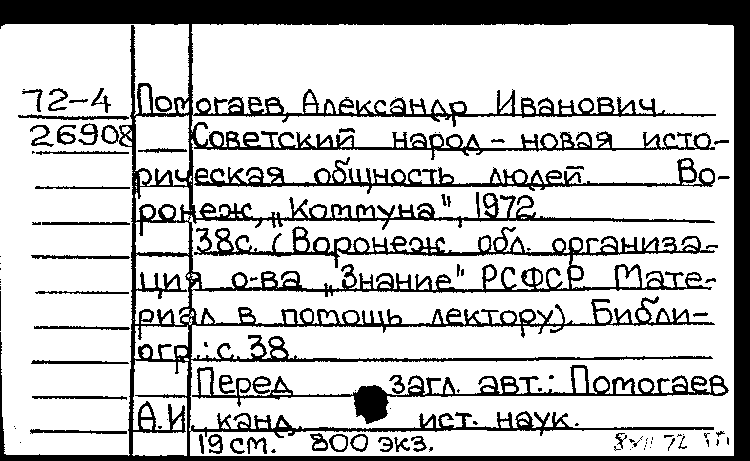 72-4 Помогаев, Александр Иванович.
26908 Советский народ - новая исто-
рическая общность людей. Во-
ронеж, „Коммуна", 1972.
38с. (Воронеж. обл. организа-
ция о-ва „Знание" РСФСР. Мате-
риал в помощь лектору). Библи-
огр.: с. 38.
Перед загл. авт.: Помогаев
А.И. канд. ист. наук.
19 см. 800 экз.
8 VII 72